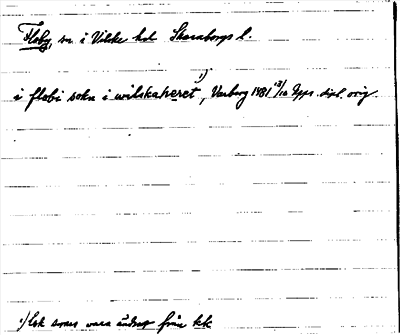 Floby, sn i Vilske hd Skaraborgs l.
1)
i flobi sokn i wilskaheret, Varberg 1481 13/10 Upps. dipl. orig.
1) k som vara ändrat från kk